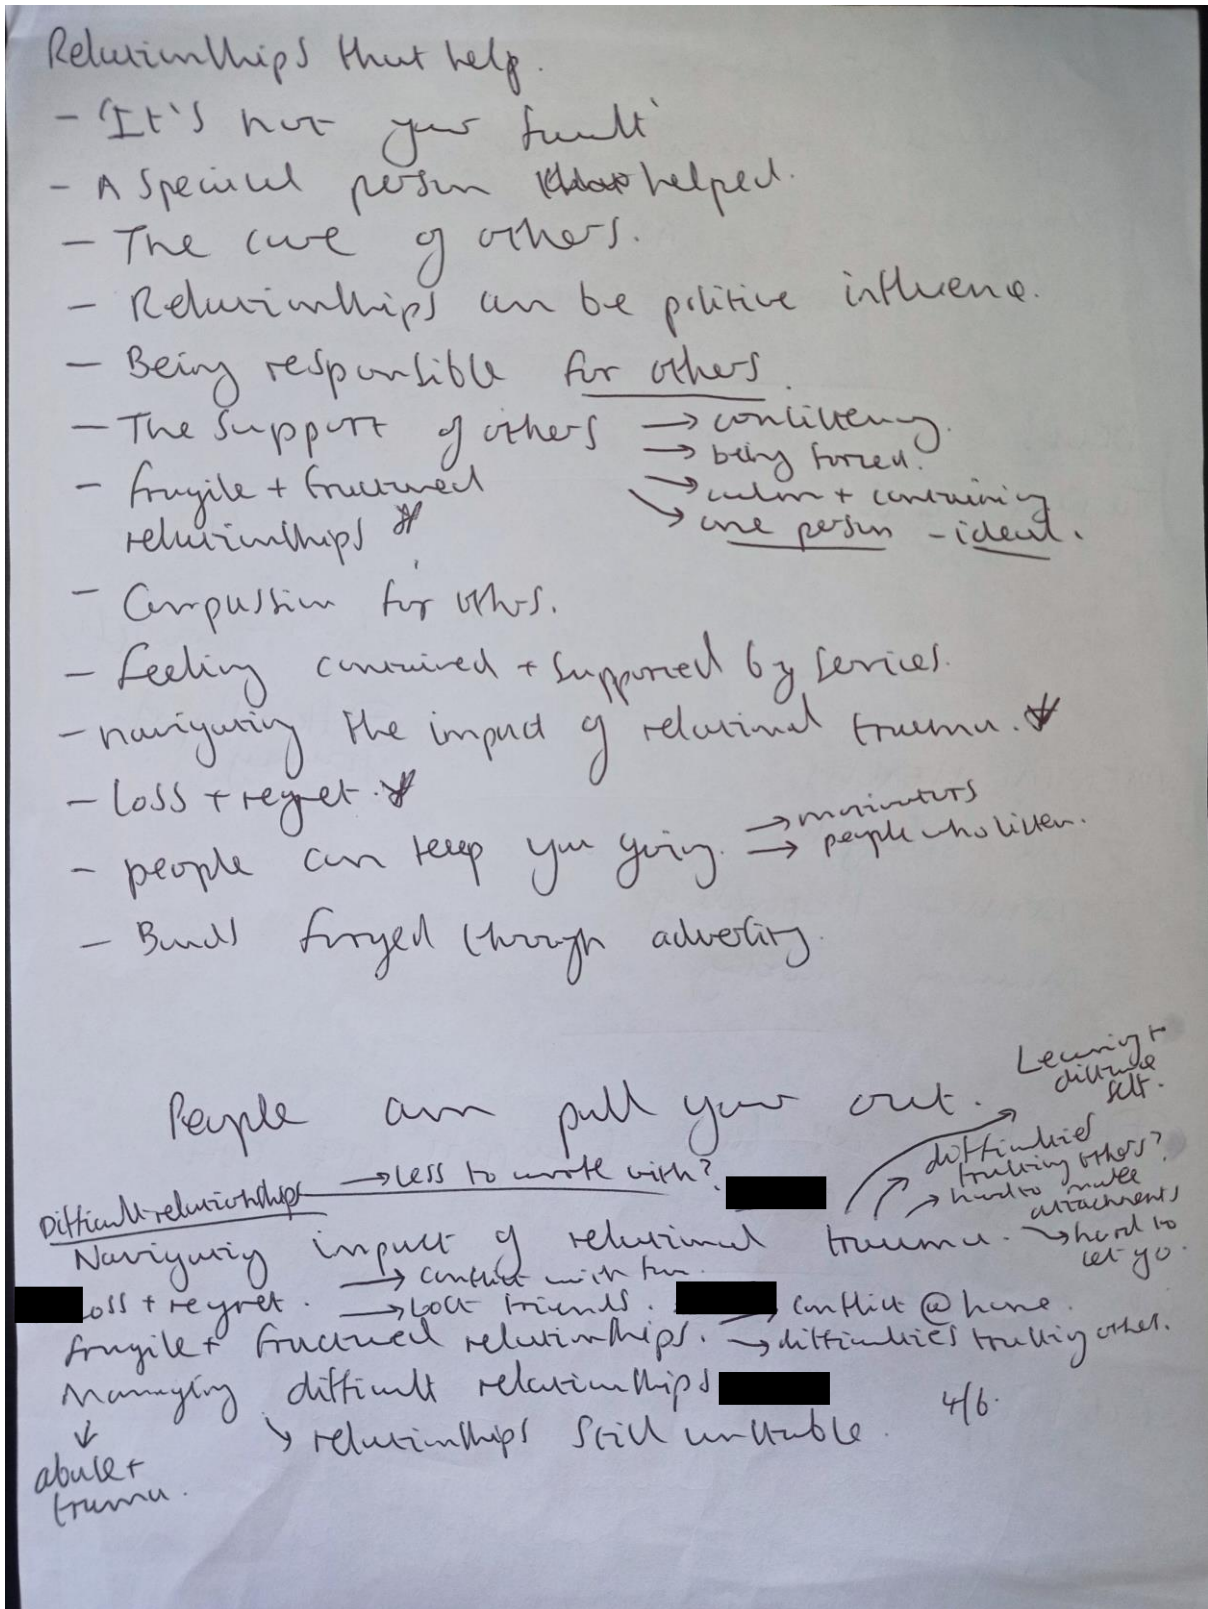 Relationships that help.
- 'It's not your fault'
- A special person helped.
- The care of others.
- Relationships can be positive influence.
- Being responsible for others.
- The support of others → consistency.
→ being forced.
- fragile + fractured → calm + containing
relationships * → one person - ideal.
- Compassion for others.
- feeling contained + supported by services.
- navigating the impact of relational trauma. *
- loss + regret. *
- people can keep you going. → motivators
→ people who listen.
- Bonds forged through adversity.
People can pull your out.
Learning to
distance
self.
Difficult relationships → less to work with?
difficulties
trusting others?
→ hard to make
attachments
Navigating impact of relational trauma. → hard to
let go.
→ conflict with
oss + regret. → lost friends. → conflict @ home.
fragile + fractured relationships. → difficulties trusting other.
Managing difficult relationships
4/6.
↓ ↘ relationships still unstable.
abuse +
trauma.